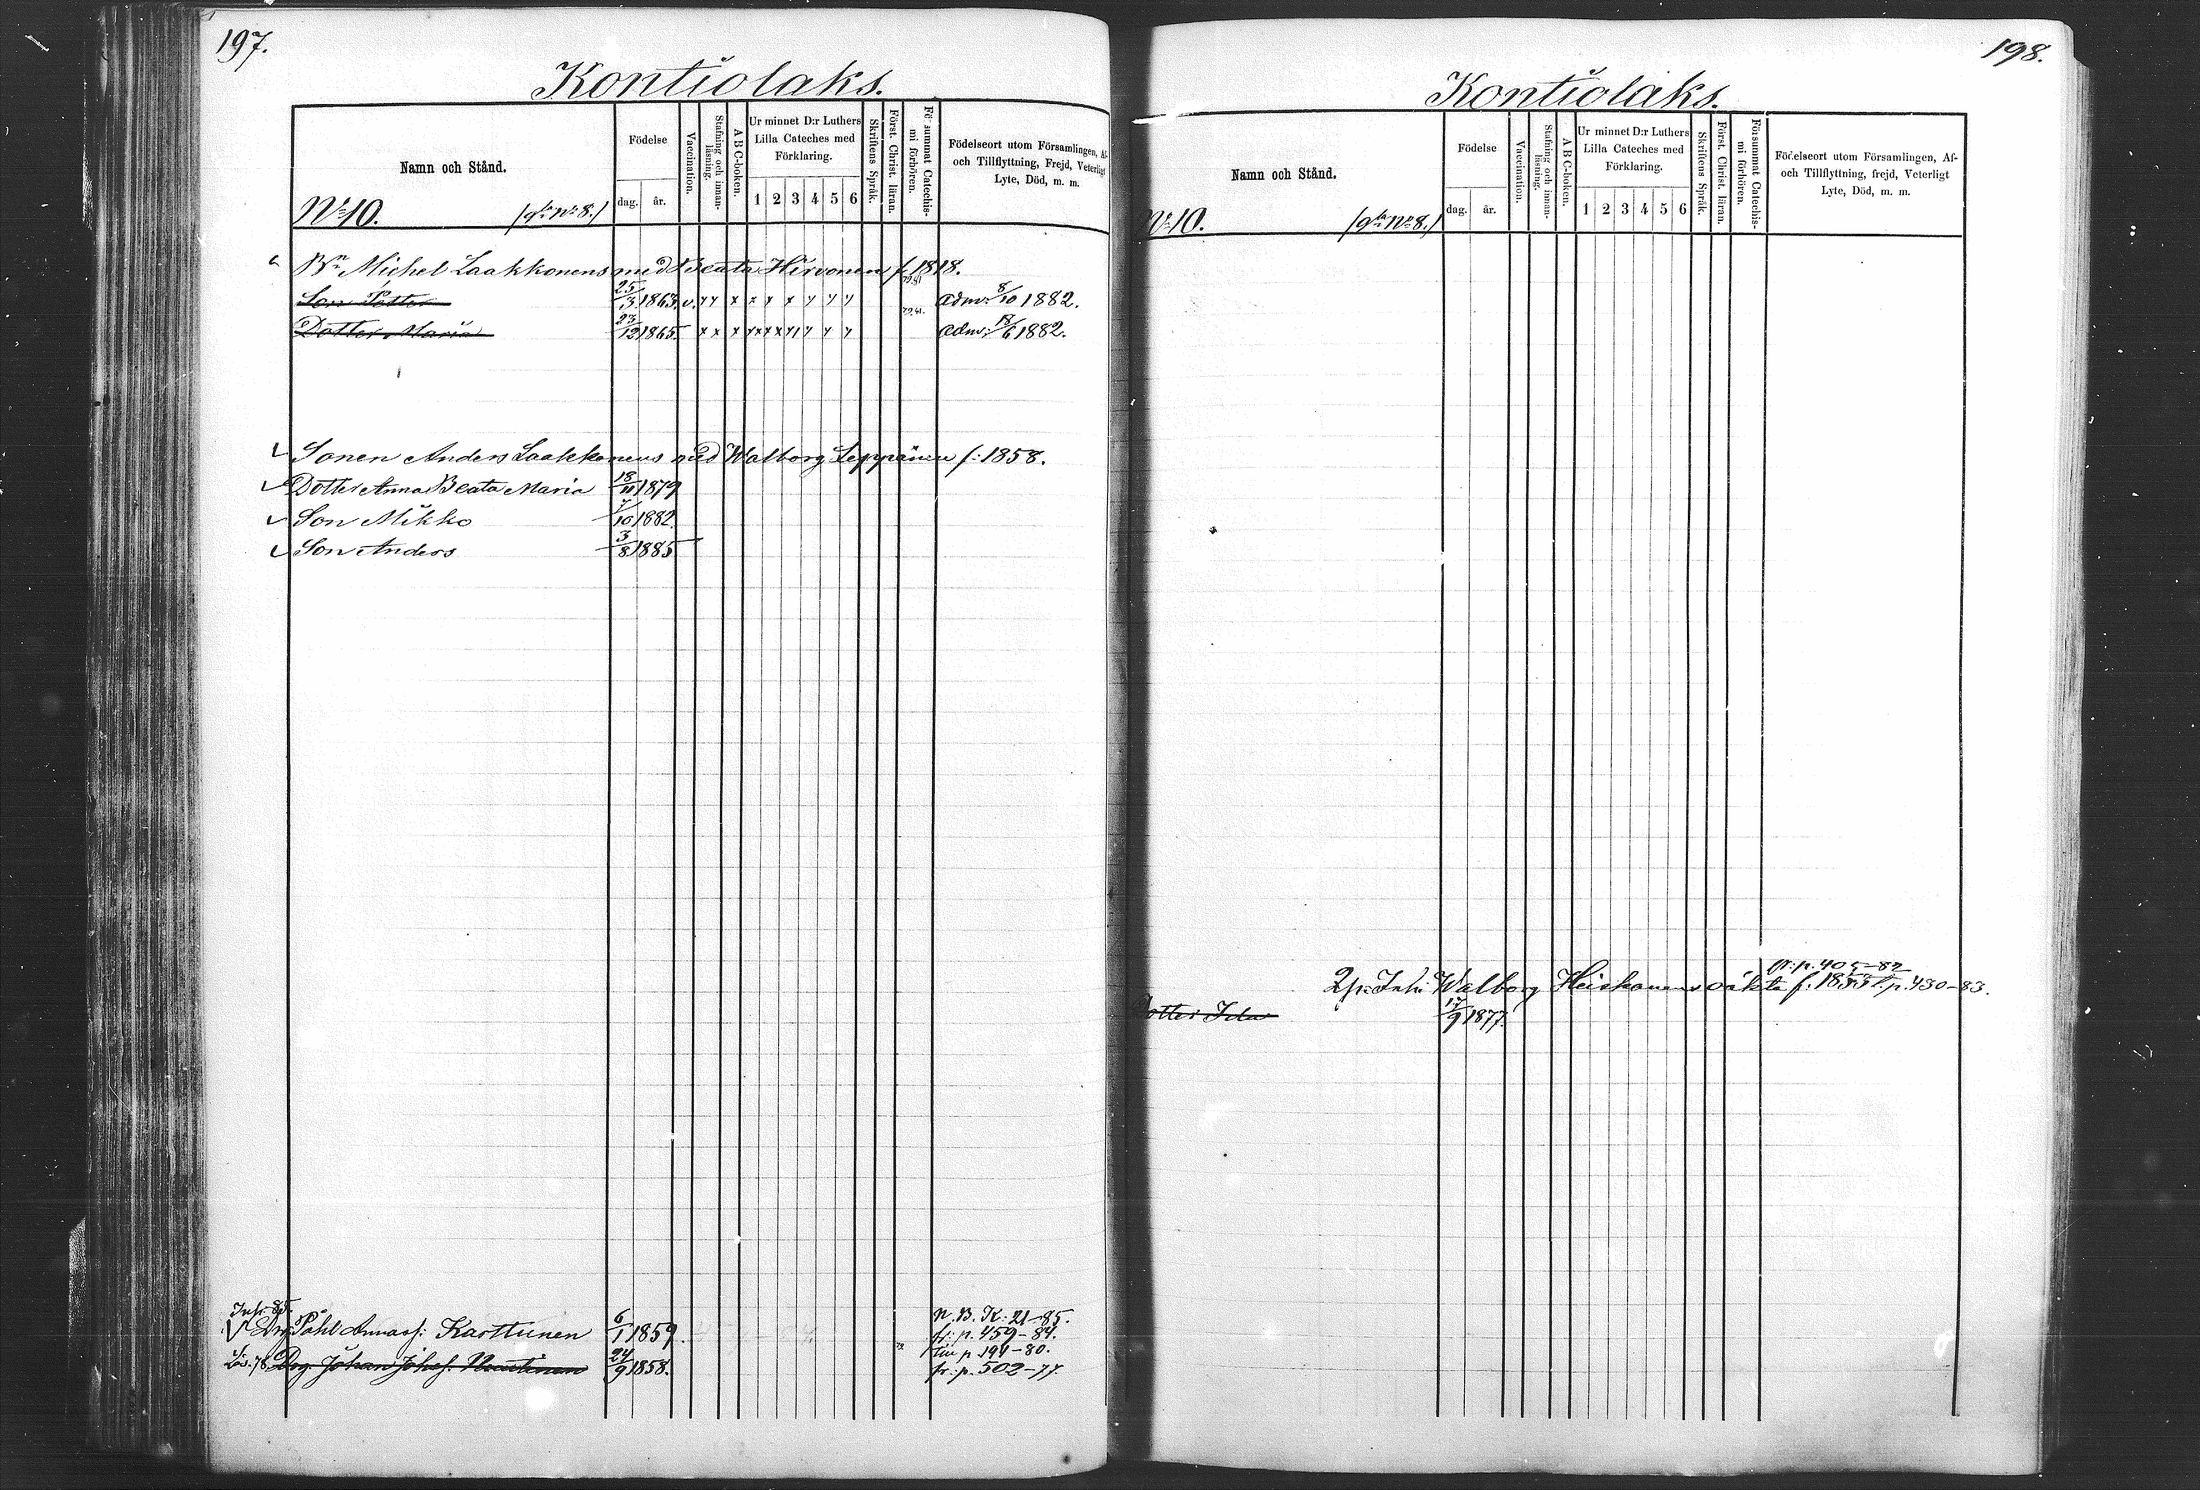 197.
Kontiolaks.
Namn och Stånd.
Födelse
dag. år.
Vaccination.
Stafning och innanläsning.
ABC-boken.
Ur minnet D:r Luthers
Lilla Cateches med
Förklaring.
1 2 3 4 5 6
Skriftens Språk.
Först. Christ. läran.
Försummat Catechismi förhören.
Födelseort utom Församlingen, Af-
och Tillflyttning, Frejd, Veterligt
Lyte, Död, m. m.
No 10. (gla No 8.)
Bn Michel Laakkonens med Beata Hirvonen f. 1818.
Son Petter 25/3 1863. v. x x x x x x x x x adm: 8/10 1882.
Dotter Maria 23/12 1865 x x x x x x x x x adm: 18/6 1882.
Sonen Anders Laakkonens med Walborg Leppänen f: 1858.
Dotter Anna Beata Maria 18/11 1879
Son Mikko 7/10 1882
Son Anders 3/8 1885
Inh. 85. N. B. K: 21-85.
Drg Påhl Annasf: Karttunen 6/1 1859 fr: p. 459-84.
till p 194-80.
Lös. 78. Drg. Johan Johsf. 24/9 1858. fr: p. 502-77.
198.
Kontiolaks.
Namn och Stånd.
Födelse
dag. år.
Vaccination.
Stafning och innanläsning.
ABC-boken.
Ur minnet D:r Luthers
Lilla Cateches med
Förklaring.
1 2 3 4 5 6
Skriftens Språk.
Först. Christ. läran.
Försummat Catechismi förhören.
Födelseort utom Församlingen, Af-
och Tillflyttning, frejd, Veterligt
Lyte, Död, m. m.
No 10. (gla No 8.)
fr: p. 405-82
Inh: Walborg Heiskanens oäkta p. 430-83.
Dotter Ida 17/9 1877.